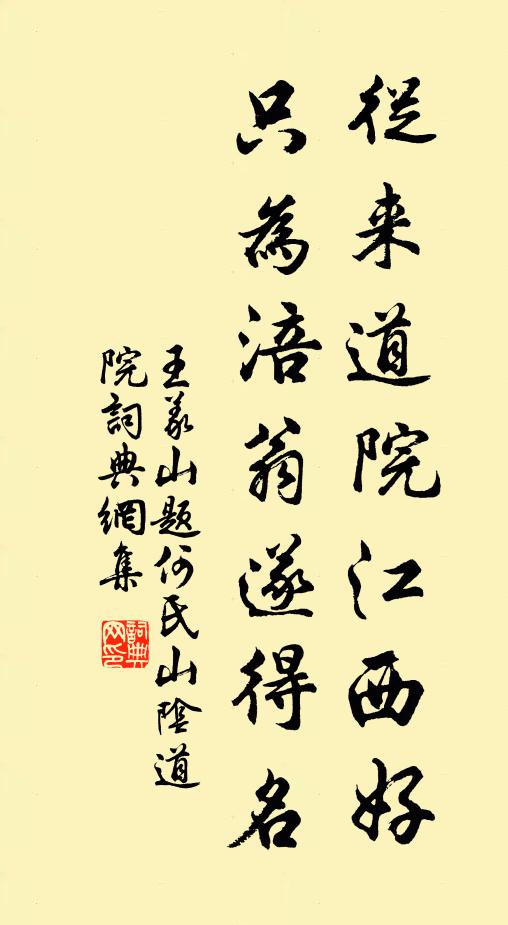 從来道院江西好
只為涪翁遂得名
王義山题何氏山陰道
院詞典網集
詞典網印